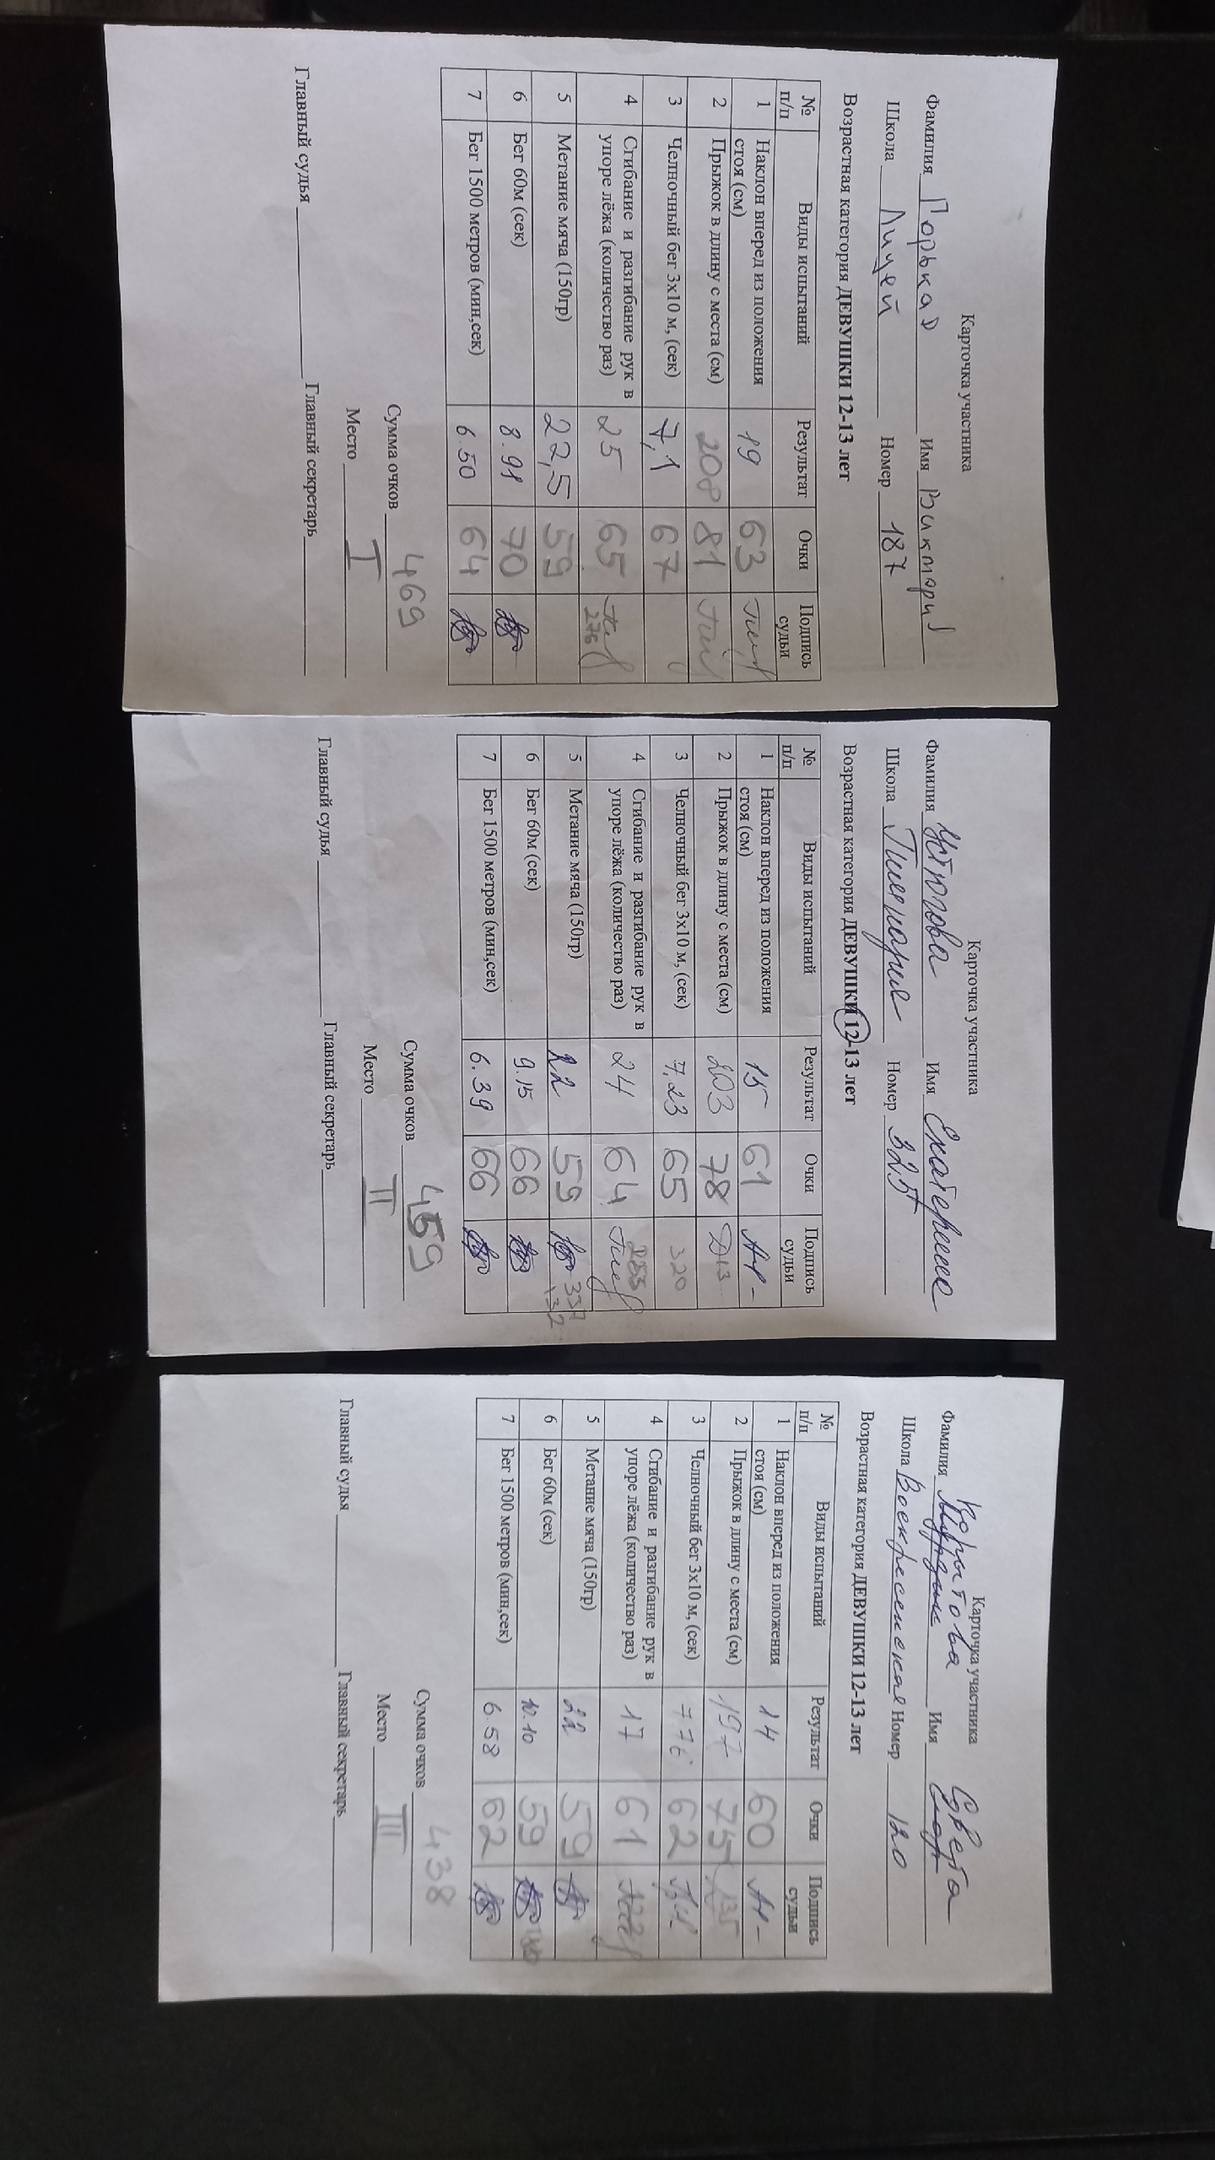 Карточка участника
Фамилия Горькая Имя Виктория
Школа Лицей Номер 187
Возрастная категория ДЕВУШКИ 12-13 лет
№ п/п Виды испытаний Результат Очки Подпись судьи
1 Наклон вперед из положения стоя (см) 19 63
2 Прыжок в длину с места (см) 208 81
3 Челночный бег 3х10 м, (сек) 7,1 67
4 Сгибание и разгибание рук в упоре лёжа (количество раз) 25 65 276
5 Метание мяча (150гр) 22,5 59
6 Бег 60м (сек) 8.91 70
7 Бег 1500 метров (мин,сек) 6.50 64
Сумма очков 469
Место I
Главный судья Главный секретарь
Карточка участника
Фамилия Устюгова Имя Екатерина
Школа Номер 325
Возрастная категория ДЕВУШКИ 12-13 лет
№ п/п Виды испытаний Результат Очки Подпись судьи
1 Наклон вперед из положения стоя (см) 15 61
2 Прыжок в длину с места (см) 203 78
3 Челночный бег 3х10 м, (сек) 7,23 65 320
4 Сгибание и разгибание рук в упоре лёжа (количество раз) 24 64
5 Метание мяча (150гр) 22 59
6 Бег 60м (сек) 9.15 66
7 Бег 1500 метров (мин,сек) 6.39 66
Сумма очков 459
Место II
Главный судья Главный секретарь
Карточка участника
Фамилия Корытова Имя Света
Школа Воскресенская Номер 120
Возрастная категория ДЕВУШКИ 12-13 лет
№ п/п Виды испытаний Результат Очки Подпись судьи
1 Наклон вперед из положения стоя (см) 14 60
2 Прыжок в длину с места (см) 197 75
3 Челночный бег 3х10 м, (сек) 776 62
4 Сгибание и разгибание рук в упоре лёжа (количество раз) 17 61
5 Метание мяча (150гр) 22 59
6 Бег 60м (сек) 10.10 59
7 Бег 1500 метров (мин,сек) 6.58 62
Сумма очков 438
Место III
Главный судья Главный секретарь